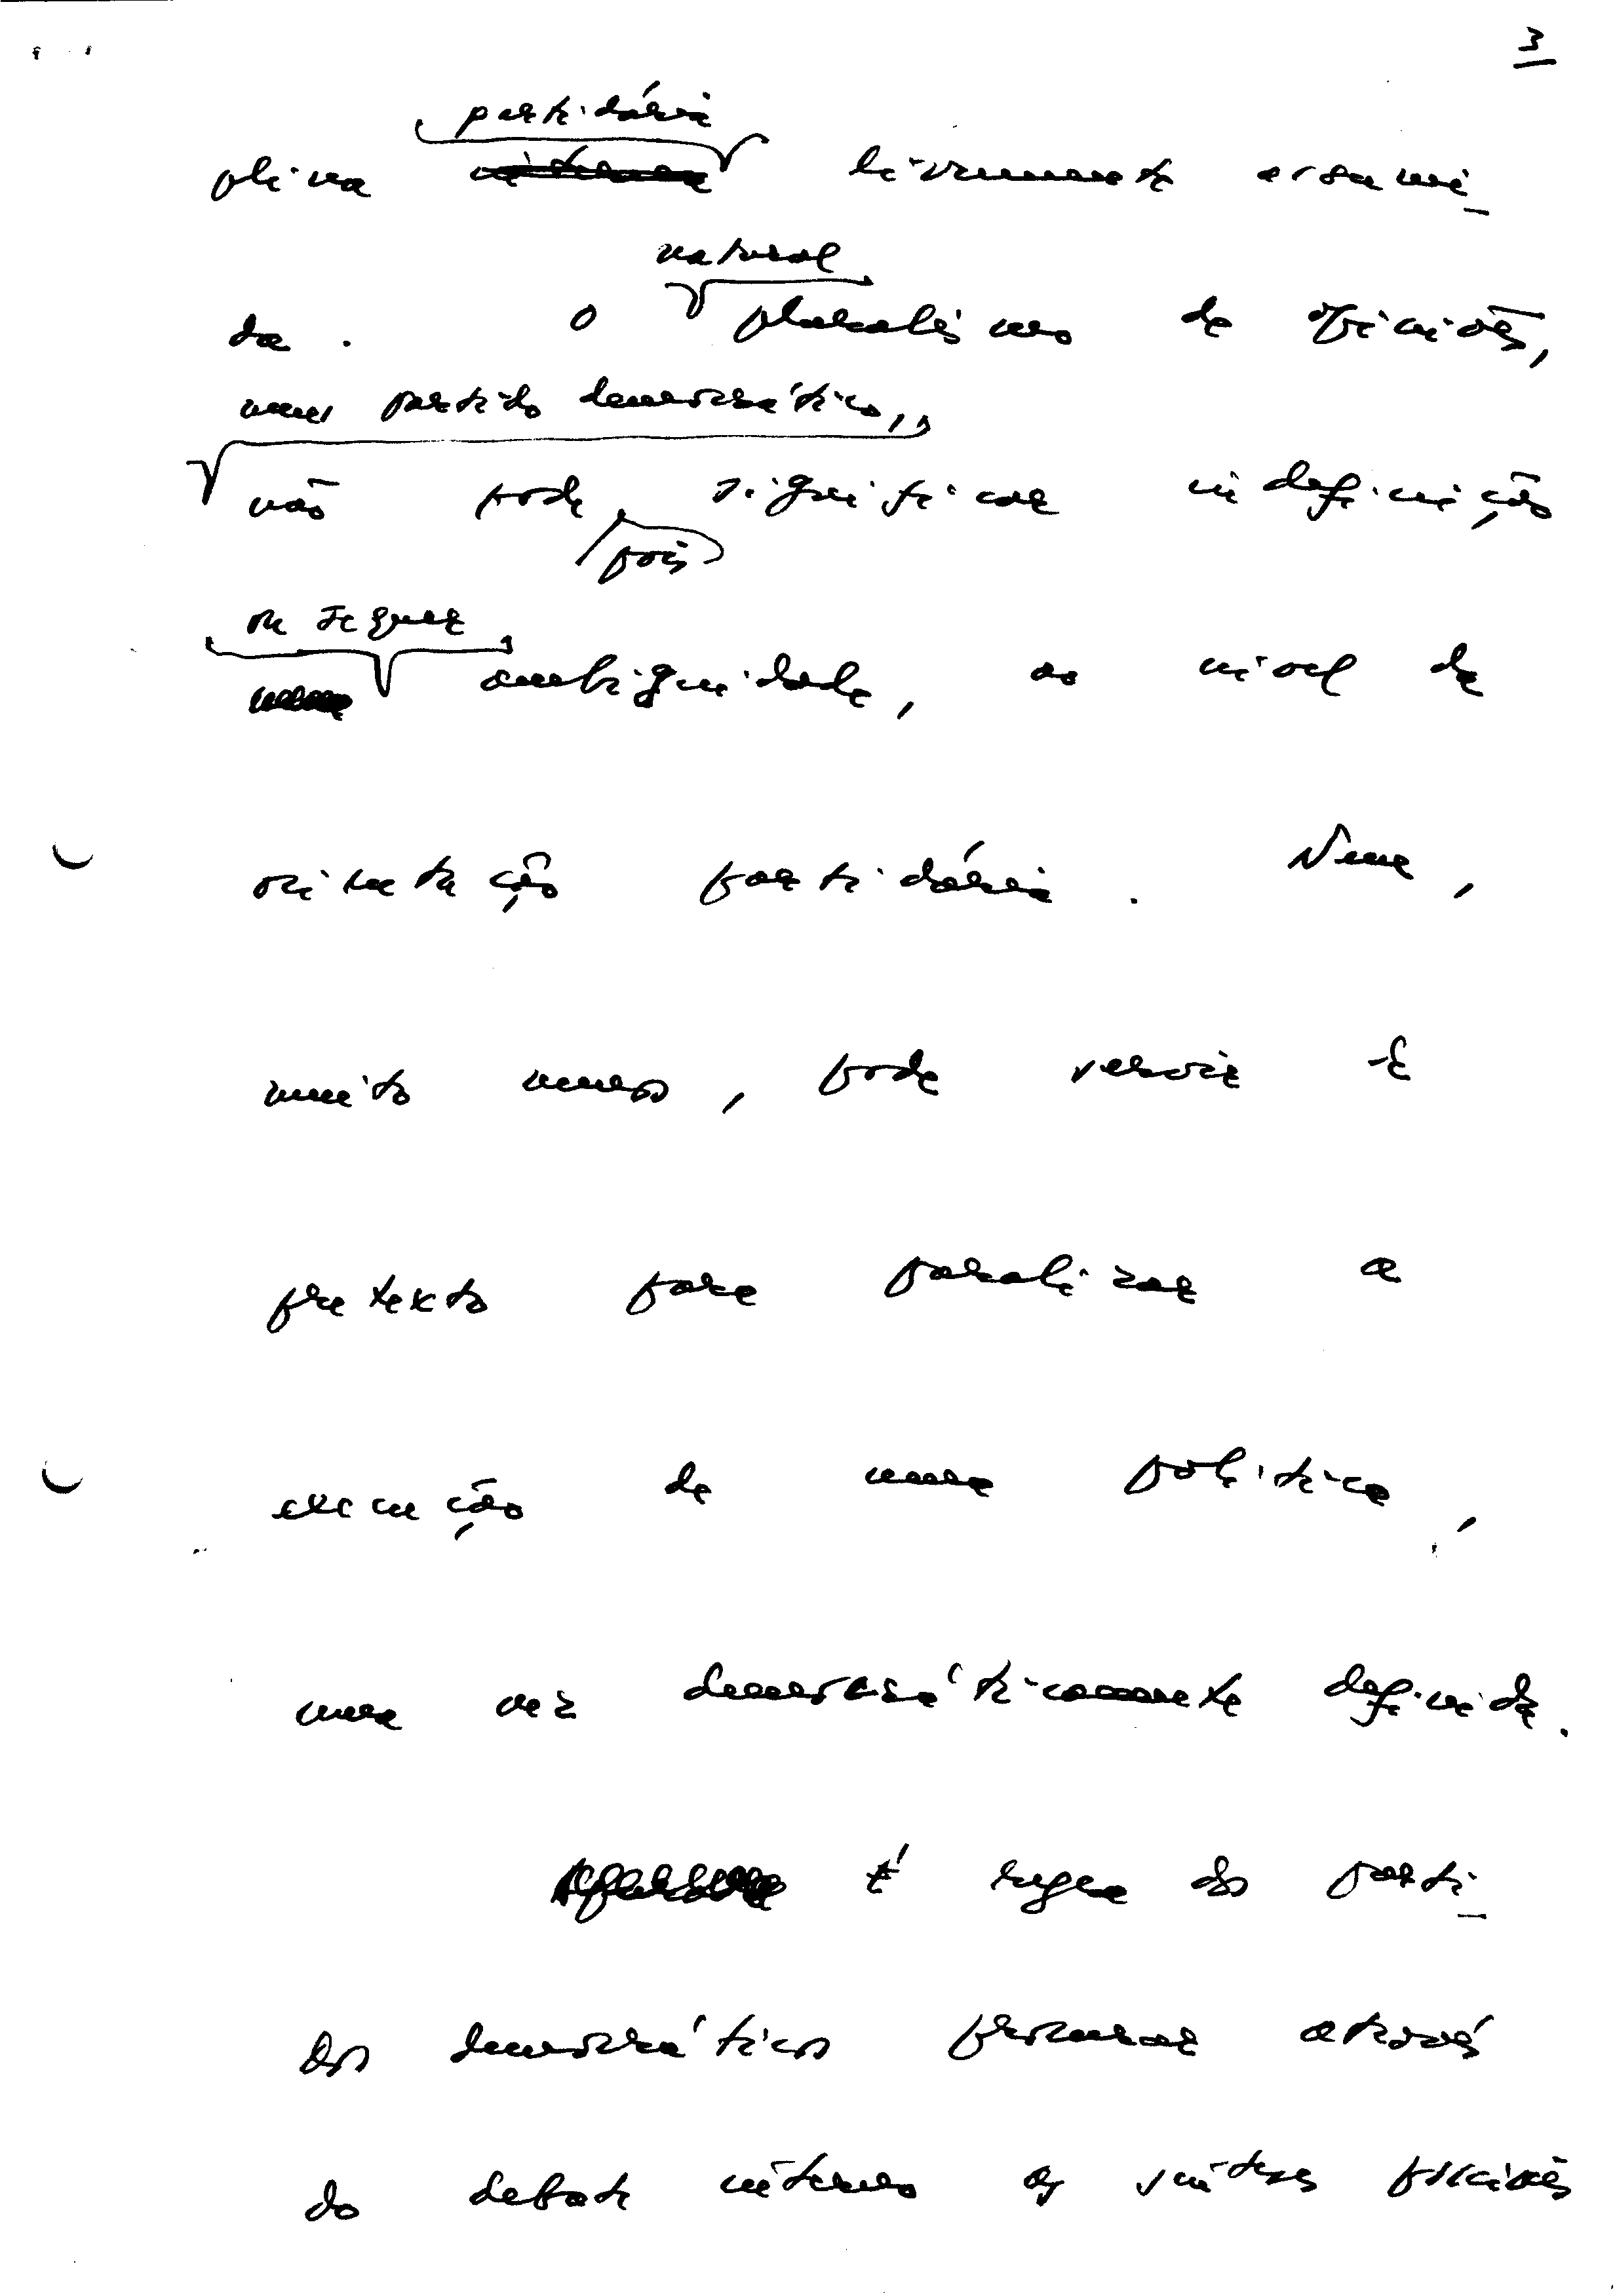 3
partidária
plina interna livremente assumi_
natural
da. O pluralismo de opiniões,
num partido democrático,,
não pode significar indefinição
pois
ou sequer
ambiguidade, ao nível de
orientação partidária. Nem,
muito menos, pode servir de
pretexto para paralizar a
execução de uma política,
uma vez democráticamente definida.
É regra do parti_
dos democráticos procurar através
do debate interno as sínteses possíveis